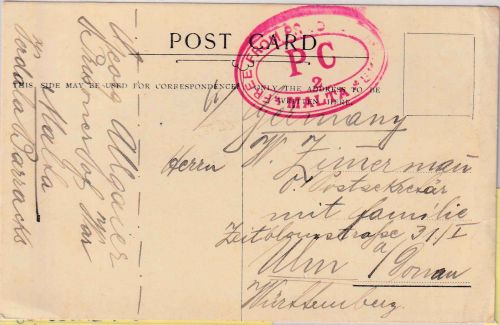 POST CARD
FREE FROM
P C
2
MALTA
THIS SIDE MAY BE USED FOR CORRESPONDENCE
ONLY THE ADDRESS TO BE
WRITTEN HERE.
Georg Allgaier
Prisoner of War
Malta
Verdala Barracks
Germany
Herrn W. Zimermann
Postsekretär
mit familie
Zeitblomstraße 31/I
Ulm a/Donau
Württemberg.